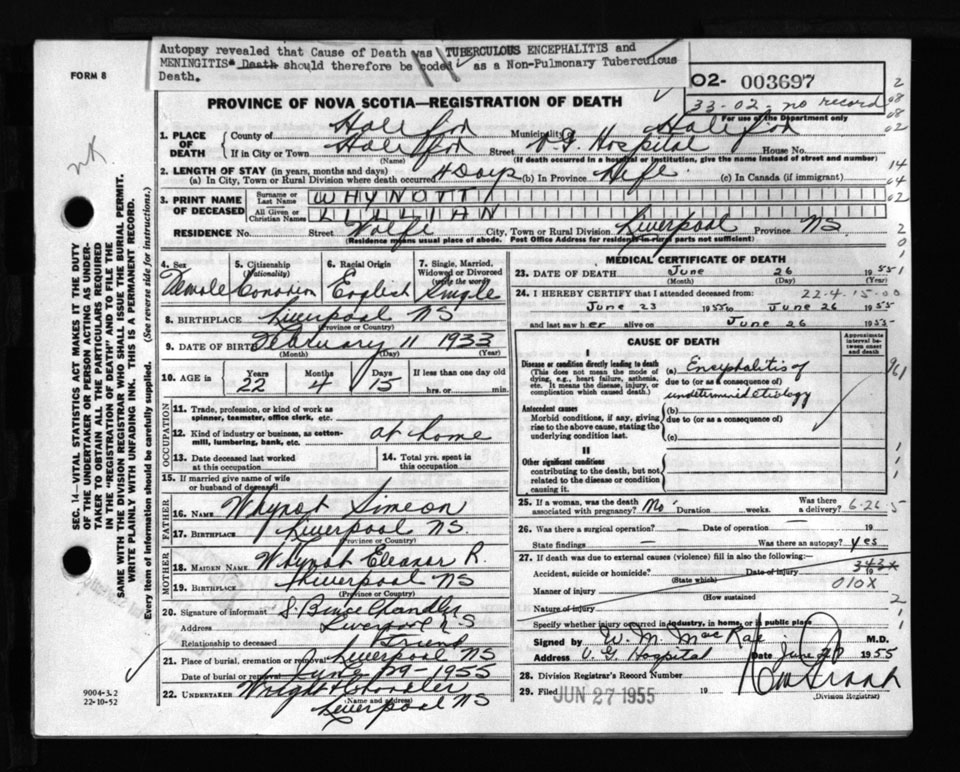 Autopsy revealed that Cause of Death was TUBERCULOUS ENCEPHALITIS and
MENINGITIS* Death should therefore be coded as a Non-Pulmonary Tuberculous
Death.
FORM 8
02- 003697
33-02-no record
For use of the Department only
PROVINCE OF NOVA SCOTIA—REGISTRATION OF DEATH
1. PLACE OF DEATH
County of Halifax Municipality of Halifax
If in City or Town Halifax Street V. G. Hospital House No.
(Name) (If death occurred in a hospital or institution, give the name instead of street and number)
2. LENGTH OF STAY (in years, months and days)
(a) In City, Town or Rural Division where death occurred 4 Days (b) In Province Life (c) In Canada (if immigrant)
3. PRINT NAME OF DECEASED
Surname or Last Name WHYNOTT
All Given or Christian Names LILLIAN
RESIDENCE No. Street Wolfe City, Town or Rural Division Liverpool Province NS
(Residence means usual place of abode. Post Office Address for residents in rural parts not sufficient)
4. Sex Female
5. Citizenship (Nationality) Canadian
6. Racial Origin English
7. Single, Married, Widowed or Divorced (write the word) Single
8. BIRTHPLACE Liverpool NS
(Province or Country)
9. DATE OF BIRTH February 11 1933
(Month) (Day) (Year)
10. AGE in Years 22 Months 4 Days 15 If less than one day old
hrs. or min.
OCCUPATION
11. Trade, profession, or kind of work as spinner, teamster, office clerk, etc.
12. Kind of industry or business, as cotton-mill, lumbering, bank, etc. at home
13. Date deceased last worked at this occupation
14. Total yrs. spent in this occupation
15. If married give name of wife or husband of deceased
FATHER
16. NAME Whynot Simeon
17. BIRTHPLACE Liverpool NS.
(Province or Country)
MOTHER
18. MAIDEN NAME Whynot Eleanor R.
19. BIRTHPLACE Liverpool NS
(Province or Country)
20. Signature of informant S. Bruce Chandler
Address Liverpool NS
Relationship to deceased Friend
21. Place of burial, cremation or removal Liverpool NS
Date of burial or removal June 29 1955
22. UNDERTAKER Wright & Chandler
(Name and address)
Liverpool NS
MEDICAL CERTIFICATE OF DEATH
23. DATE OF DEATH June 26 1955
(Month) (Day) (Year)
24. I HEREBY CERTIFY that I attended deceased from:
22-4-15-00
June 23 1955 to June 26 1955
and last saw her alive on June 26 1955
CAUSE OF DEATH
Approximate interval between onset and death
I
Disease or condition directly leading to death
(This does not mean the mode of dying, e.g., heart failure, asthenia, etc. It means the disease, injury, or complication which caused death.)
(a) Encephalitis of
due to (or as a consequence of)
undetermined etiology
Antecedent causes
Morbid conditions, if any, giving rise to the above cause, stating the underlying condition last.
(b)
due to (or as a consequence of)
(c)
II
Other significant conditions
contributing to the death, but not related to the disease or condition causing it.
25. If a woman, was the death associated with pregnancy? No Duration weeks. Was there a delivery? 6-26-5
26. Was there a surgical operation? — Date of operation — 19
State findings — Was there an autopsy? Yes
27. If death was due to external causes (violence) fill in also the following:—
Accident, suicide or homicide? Date of injury 19
(State which)
343X
Manner of injury 010X
(How sustained
Nature of injury
Specify whether injury occurred in industry, in home, or in public place
Signed by W. M. MacRae M.D.
Address V. G. Hospital Date June 27 1955
28. Division Registrar's Record Number
29. Filed JUN 27 1955 19
(Division Registrar)
SEC. 14—VITAL STATISTICS ACT MAKES IT THE DUTY
OF THE UNDERTAKER OR PERSON ACTING AS UNDER-
TAKER TO OBTAIN ALL THE PARTICULARS REQUIRED
IN THE "REGISTRATION OF DEATH" AND TO FILE THE
SAME WITH THE DIVISION REGISTRAR WHO SHALL ISSUE THE BURIAL PERMIT.
WRITE PLAINLY WITH UNFADING INK. THIS IS A PERMANENT RECORD.
Every item of information should be carefully supplied. (See reverse side for instructions.)
9004-3.2
22-10-52